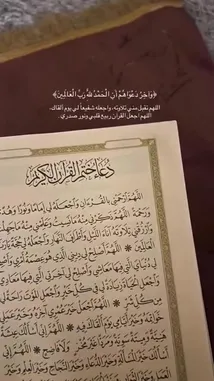 ﴿وَآخِرُ دَعْوَاهُمْ أَنِ الْحَمْدُ لِلَّهِ رَبِّ الْعَالَمِينَ﴾
اللهم تقبل مني تلاوته، واجعله شفيعاً لي يوم ألقاك،
اللهم اجعل القرآن ربيع قلبي ونور صدري.
دعاء ختم القرآن الكريم
اللَّهُمَّ ارْحَمْنِي بِالْقُرْآنِ وَاجْعَلْهُ لِي إِمَامًا وَنُورًا وَهُدًى
وَرَحْمَةً اللَّهُمَّ ذَكِّرْنِي مِنْهُ مَا نَسِيتُ وَعَلِّمْنِي مِنْهُ مَا جَهِلْتُ
وَارْزُقْنِي تِلَاوَتَهُ آنَاءَ اللَّيْلِ وَأَطْرَافَ النَّهَارِ وَاجْعَلْهُ لِي حُجَّةً
الْعَالَمِينَ اللَّهُمَّ أَصْلِحْ لِي دِينِي الَّذِي هُوَ عِصْمَةُ أَمْرِي
لِي دُنْيَايَ الَّتِي فِيهَا مَعَاشِي وَأَصْلِحْ لِي آخِرَتِي الَّتِي فِيهَا
وَاجْعَلِ الْحَيَاةَ زِيَادَةً لِي فِي كُلِّ خَيْرٍ وَاجْعَلِ الْمَوْتَ رَاحَةً
مِنْ كُلِّ شَرٍّ اللَّهُمَّ اجْعَلْ خَيْرَ عُمْرِي آخِرَهُ وَخَيْرَ عَمَلِي
خَوَاتِمَهُ وَخَيْرَ أَيَّامِي يَوْمَ أَلْقَاكَ فِيهِ اللَّهُمَّ إِنِّي
هَنِيَّةً وَمِيتَةً سَوِيَّةً وَمَرَدًّا غَيْرَ مُخْزٍ وَلَا فَاضِحٍ اللَّهُمَّ إِنِّي
أَسْأَلُكَ خَيْرَ الْمَسْأَلَةِ وَخَيْرَ الدُّعَاءِ وَخَيْرَ النَّجَاحِ وَخَيْرَ الْعِلْمِ